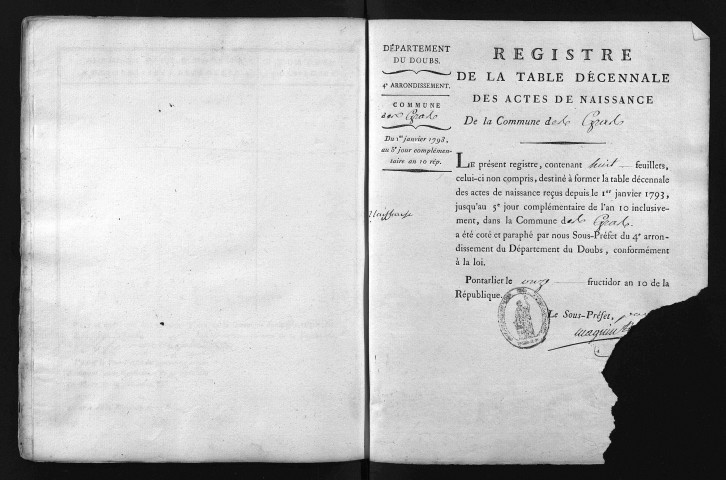 DÉPARTEMENT
DU DOUBS.
4e ARRONDISSEMENT.
COMMUNE
des Gras
Du 1er janvier 1793,
au 5e jour complémen-
taire an 10 rép.
REGISTRE
DE LA TABLE DÉCENNALE
DES ACTES DE NAISSANCE
De la Commune des Gras
LE présent registre, contenant huit feuillets,
celui-ci non compris, destiné à former la table décennale
des actes de naissance reçus depuis le 1er janvier 1793,
jusqu'au 5e jour complémentaire de l'an 10 inclusive-
ment, dans la Commune des Gras
a été coté et paraphé par nous Sous-Préfet du 4e arron-
dissement du Département du Doubs, conformément
à la loi.
Pontarlier le onze fructidor an 10 de la
République.
Le Sous-Préfet,